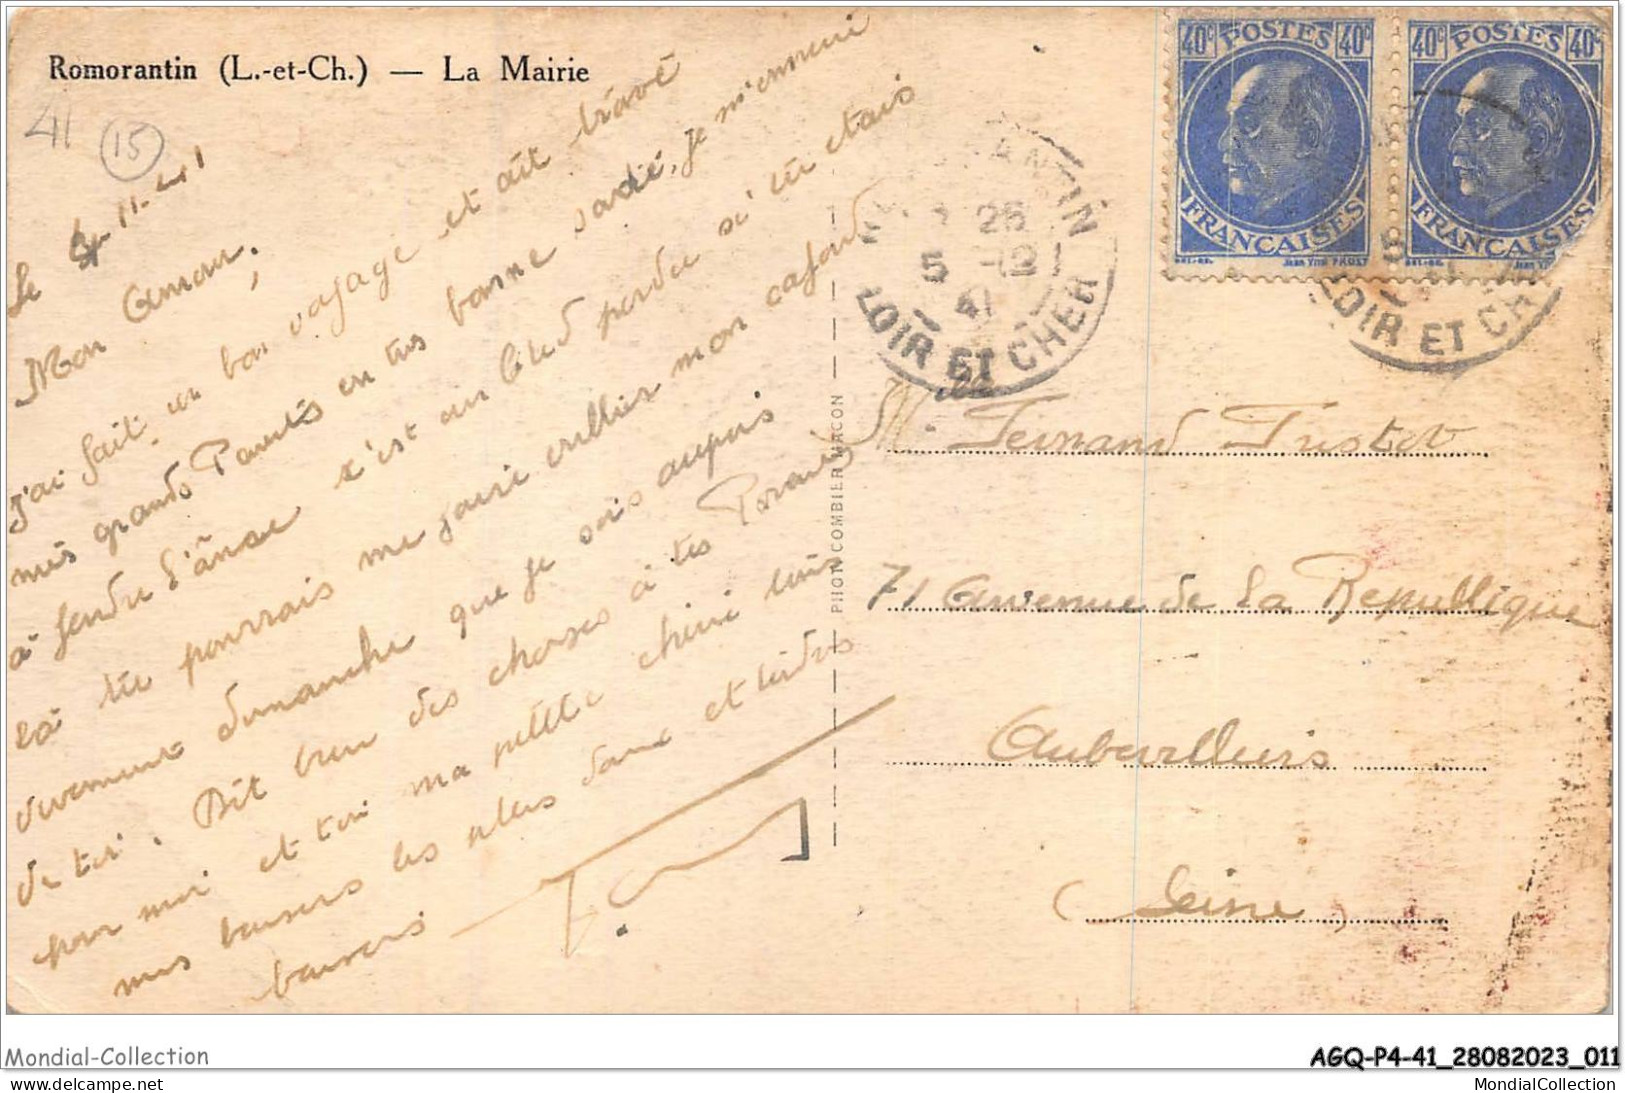 Romorantin (L.-et-Ch.) — La Mairie
41
15
Le 4-11-41
Mon Amour,
J'ai fait un bon voyage et ait trouvé
mes grands Parents en très bonne santé, je m'ennui
à fendre l'âme c'est un bled perdu si tu étais
là tu pourrais me faire oublier mon cafard
vivement dimanche que je sois auprès
de toi. Dit bien des choses à tes Parents
pour moi et toi ma petite chérie
mes baisers les plus doux et tendres
baisers
POSTES
40c 40c
FRANÇAISES
POSTES
40c 40c
FRANÇAISES
ROMORANTIN
25
5 -12
41
LOIR ET CHER
LOIR ET CH
PHOT. COMBIER MACON
Mlle Fernand Tristot
71 Avenue de la République
Aubervilliers
(Seine)
Mondial-Collection
AGQ-P4-41_28082023_011
delcampe.net
MondialCollection